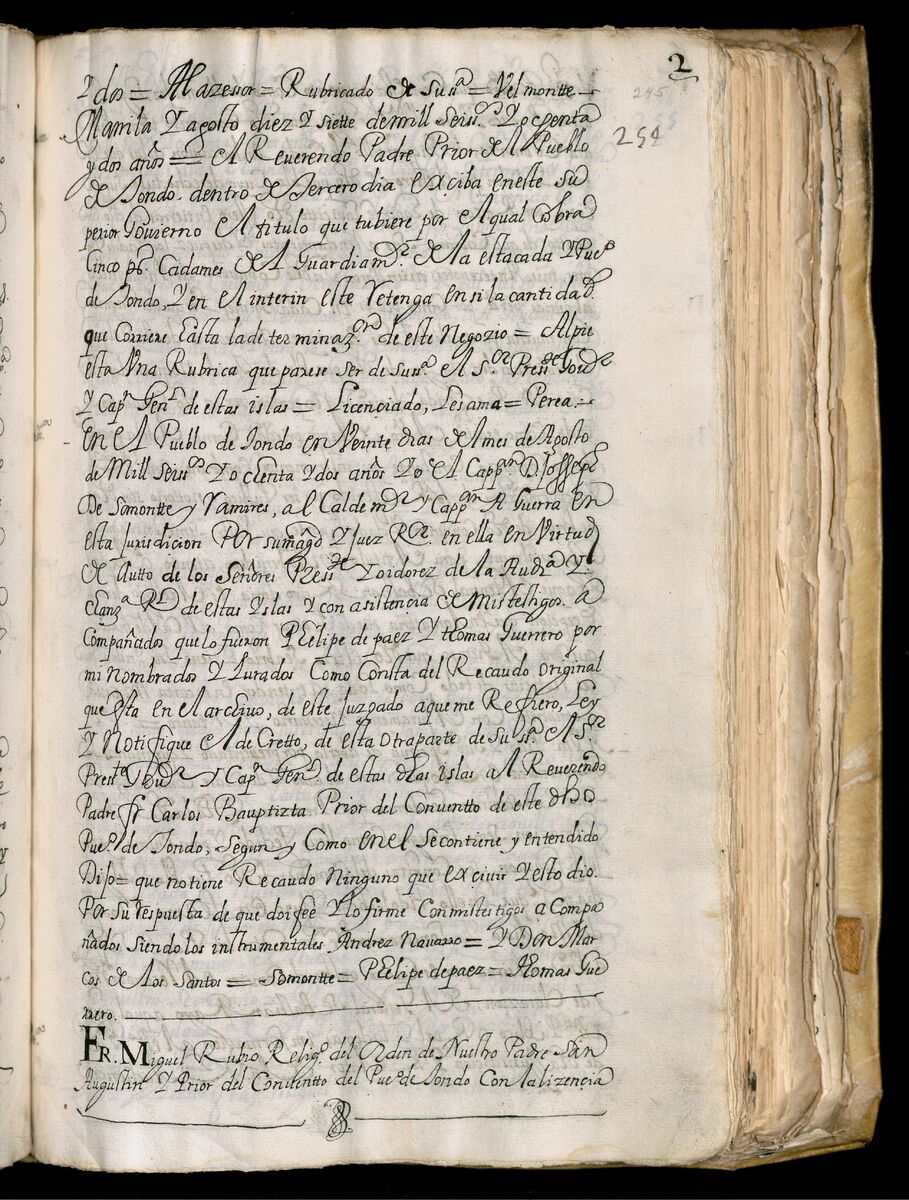 2
245
254
Y dos = Al azesor = Rubricado de su sa = Velmontte =
Manila Y agosto diez Y siette de mill Seis.os Y ochenta
y dos años = Al Reuerendo Padre Prior del Pueblo
de Tondo. dentro de Tercero dia exçiba en este su
perior Gouierno el titulo que tubiere por el qual Cobra
Cinco ps. Cadames del Guardia mr. de la estacada Y Pueo
de Tondo, Y en el interin este Retenga en si la cantidad.
que Corriere Easta la de terminazon de este Negozio = Al pie
esta Vna Rubrica que parese ser de su sa. el Sor Preste Goude
Y Capn Genl de estas islas = Licenciado, Lesama = Perea.
en el Pueblo de Tondo en Veinte dias del mes de Agosto
de Mill Seisos Y ochenta Y dos años Yo el Cappan D Joſſeph
De Somontte y Ramires, al Calde mor y Cappan A Guerra en
esta Jurisdicion Por su magd Y Juez Ror. en ella en Virtud
de Autto de los Señores Presste Y oidorez de la Auda Y
Chanza Rl de estas Yslas Y con asistencia de Mis testigos. a
Compañados que lo fueron Phelipe de paez Y thomas Guerrero por
mi nombrados Y Jurados Como Consta del Recaudo original
que esta en el archivo, de este Juzgado a que me Refiero, Ley
Y Notifique el de Cretto, de esta otra parte de su sa. el Sor
Preste Goudr Y Capn Genl. de estas dhas islas al Reuerendo
Padre fr Carlos Bauptizta Prior del Conuentto de este dho
Pueo. de Tondo, Segun y Como en el se contiene y entendido
Dijo = que no tiene Recaudo Ninguno que exçiuir Y esto dio.
Por su respuesta de que doi fee Y lo firme Con mis testigos a Compa
ñados siendo los instrumentales Andrez Nauarro = Y Don Mar
cos de los santos = Somontte = Phelipe de paez = Thomas Gue
rrero.
FR. Miguel Rubio Religo. del Orden de Nuestro Padre San
Augustin Y Prior del Conuentto del Pueo. de Tondo Con la lizencia